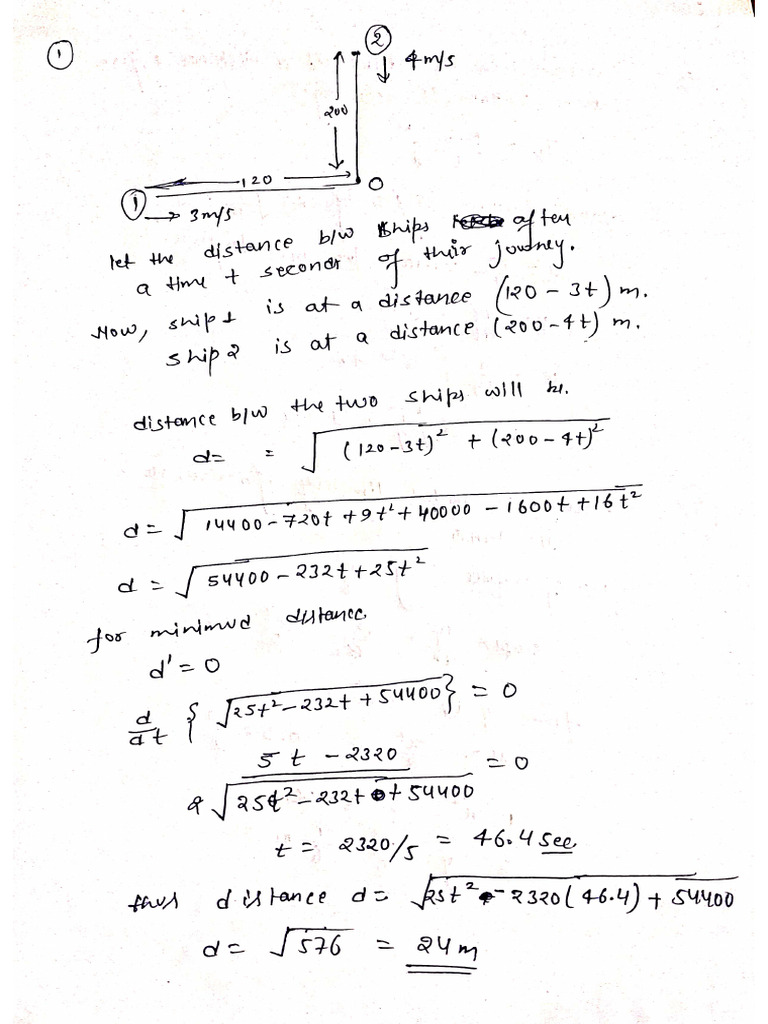 ①
②
4 m/s
200
120
O
①
→ 3 m/s
let the distance b/w ships after
a time t seconds of their journey.
Now, ship 1 is at a distance (120 - 3t) m.
ship 2 is at a distance (200 - 4t) m.
distance b/w the two ships will be.
d= = √(120-3t)² + (200-4t)²
d = √14400 - 720t + 9t² + 40000 - 1600t + 16t²
d = √54400 - 232t + 25t²
for minimud distance
d' = 0
d/dt { √25t² - 232t + 54400 } = 0
5 t - 2320 / 2√25t² - 232t + 54400 = 0
t = 2320/5 = 46.4 sec
thus distance d = √25t² - 2320(46.4) + 54400
d = √576 = 24 m